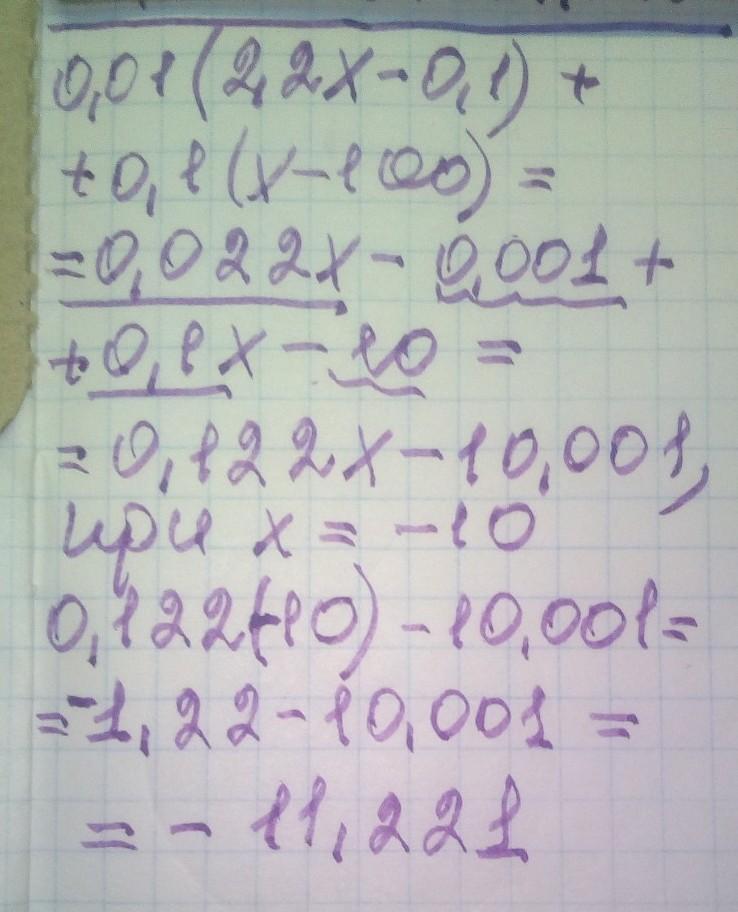 0,01(2,2x-0,1)+
+0,1(x-100)=
=0,022x-0,001+
+0,1x-10=
=0,122x-10,001,
при x=-10
0,122(-10)-10,001=
=-1,22-10,001=
=-11,221